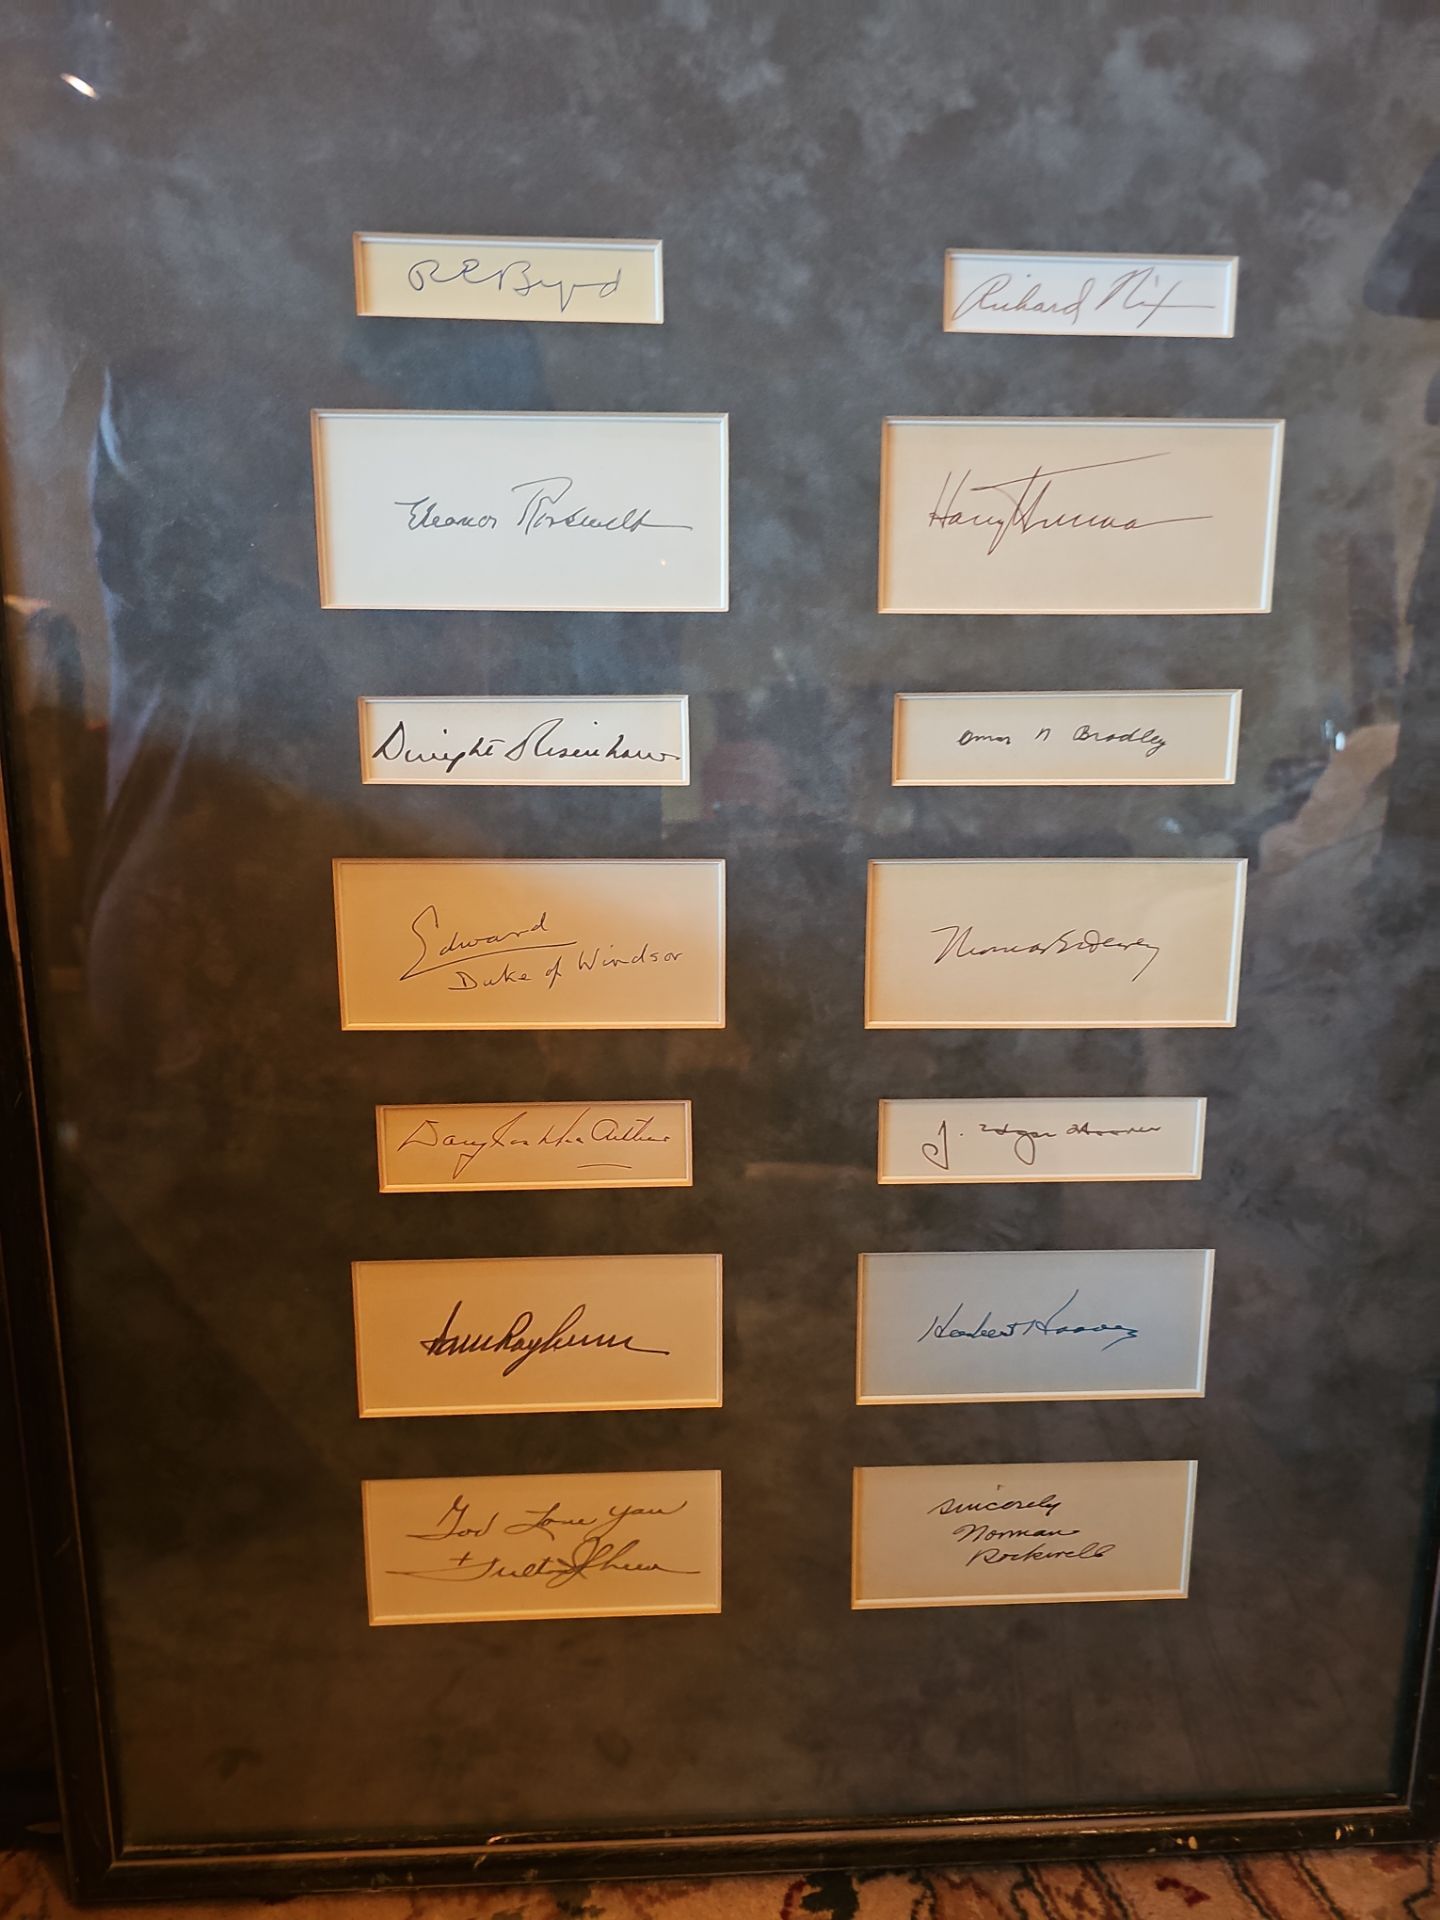 R E Byrd
Richard Nix
Eleanor Roosevelt
Harry Truman
Dwight Eisenhower
Omar N Bradley
Edward
Duke of Windsor
Thomas E Dewey
Douglas MacArthur
J. Edgar Hoover
Sam Rayburn
Herbert Hoover
God Love you
+ Fulton J Sheen
Sincerely
Norman
Rockwell